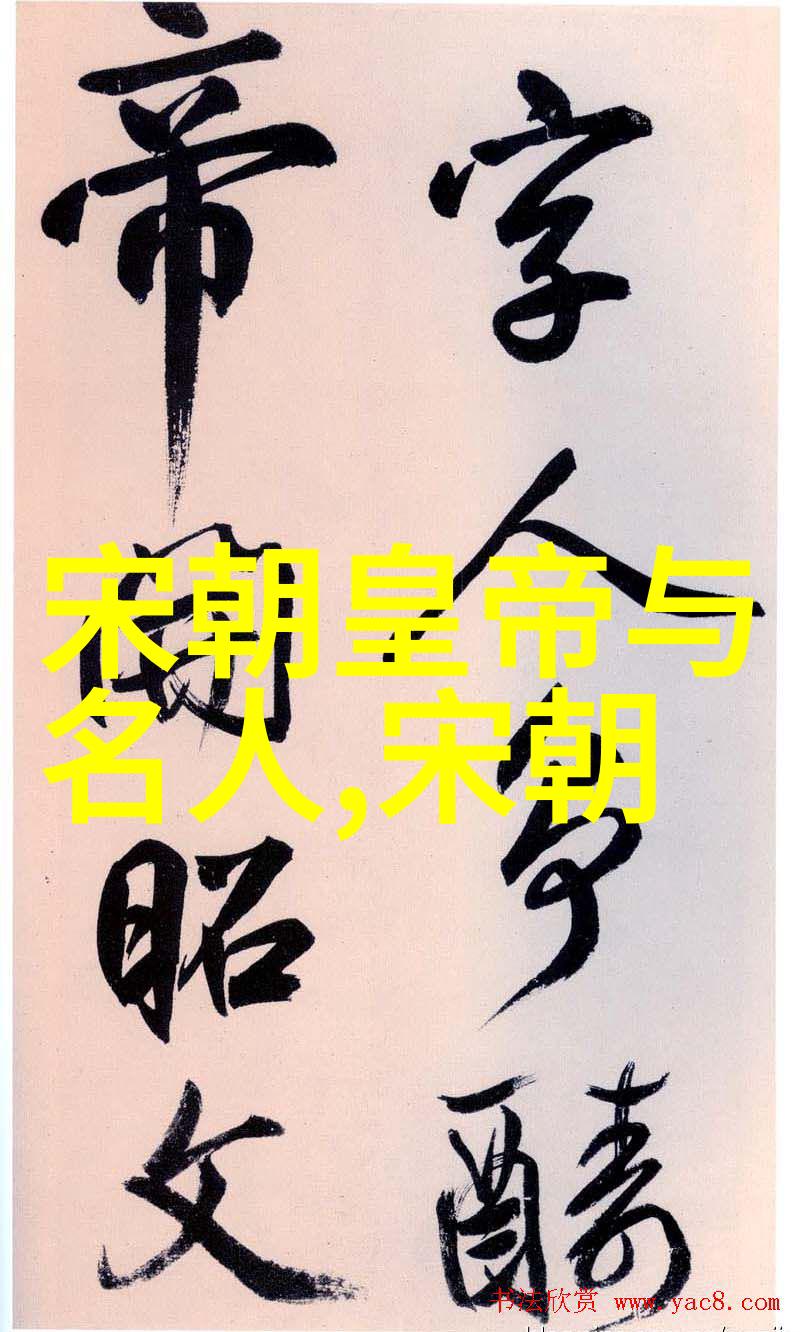 字人爭醻
帝開昭文
宋朝皇帝与
名人,宋朝
书法欣赏 www.yac8.com